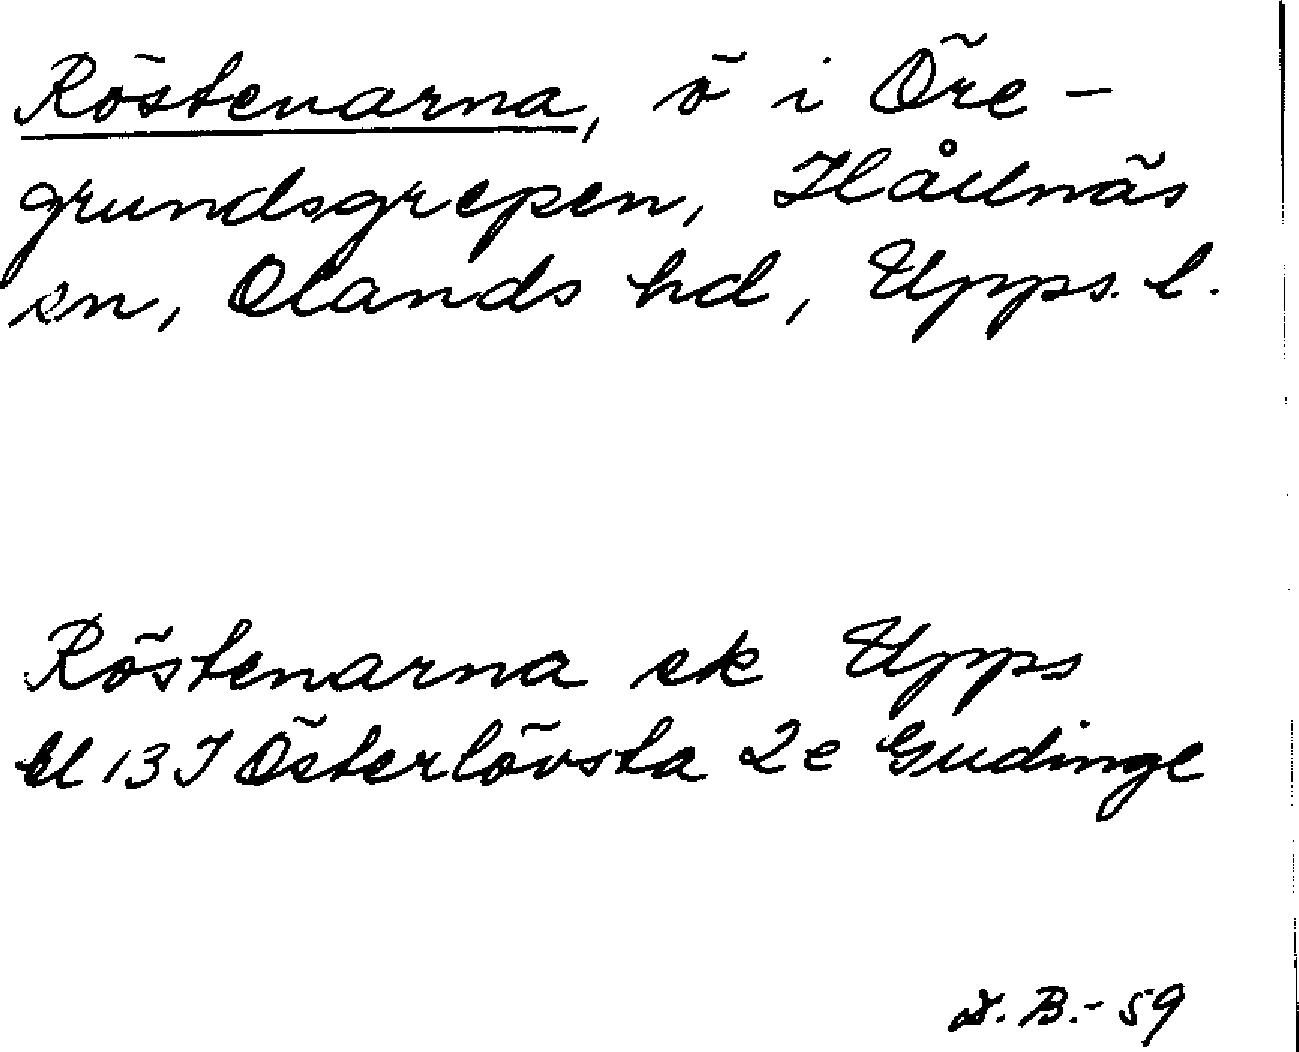 Röstenarna, ö i Öre-
grundsgrepen, Hållnäs
sn, Olands hd, Upps. l.
Röstenarna ek Upps
bl 13 I Österlövsta 2e Gudinge
B.-59